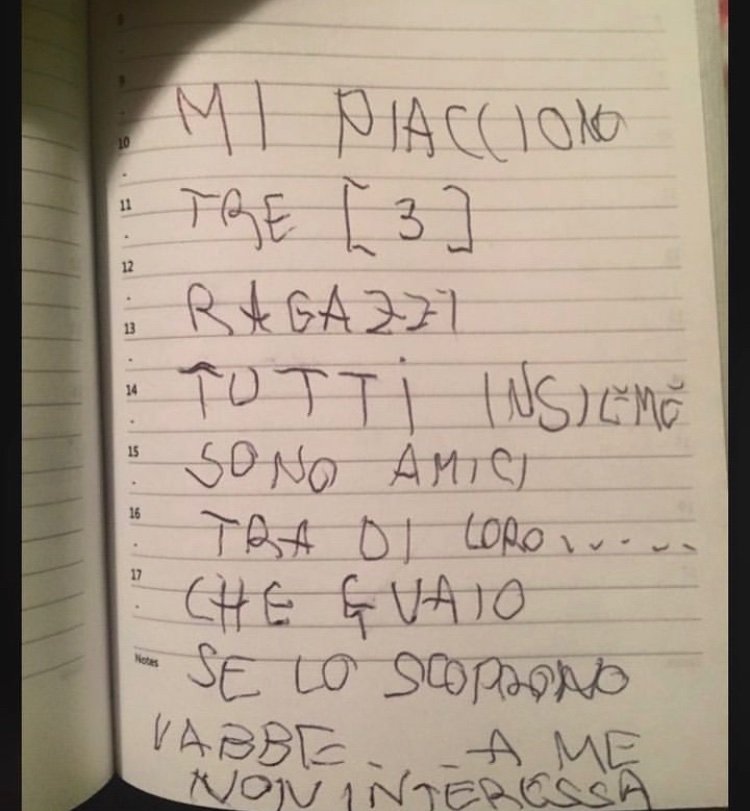 8
9
MI PIACCIONO
10
11
TRE [3]
12
RAGAZZI
13
TUTTI INSIEME
14
SONO AMICI
15
TRA DI LORO.....
16
CHE GUAIO
17
Notes
SE LO SCOPRONO
VABBE.. A ME
NON INTERESSA